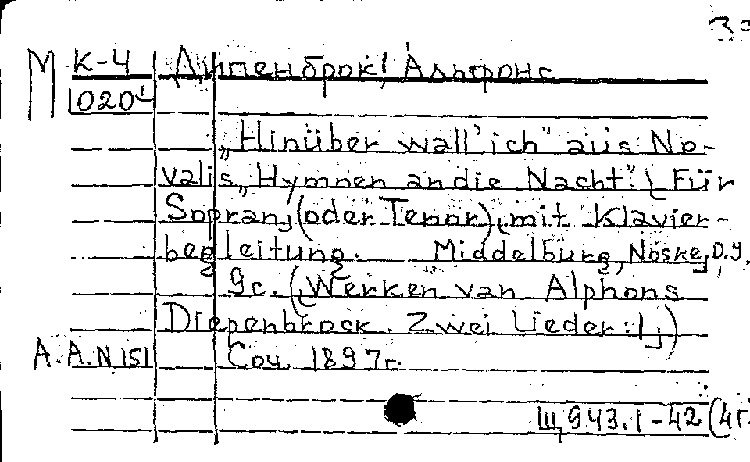 М К-4 Дипенброк, Альфонс
0204
„Hinüber wall' ich" aus No-
valis „Hymnen an die Nacht". [Für
Sopran, (oder Tenor), mit Klavier-
begleitung. Middelburg, Noske,
9с. (Werken van Alphons
Diepenbrock. Zwei Lieder: 1,)
A.A.N 151 Соч. 1897г.
Щ 943.1-42